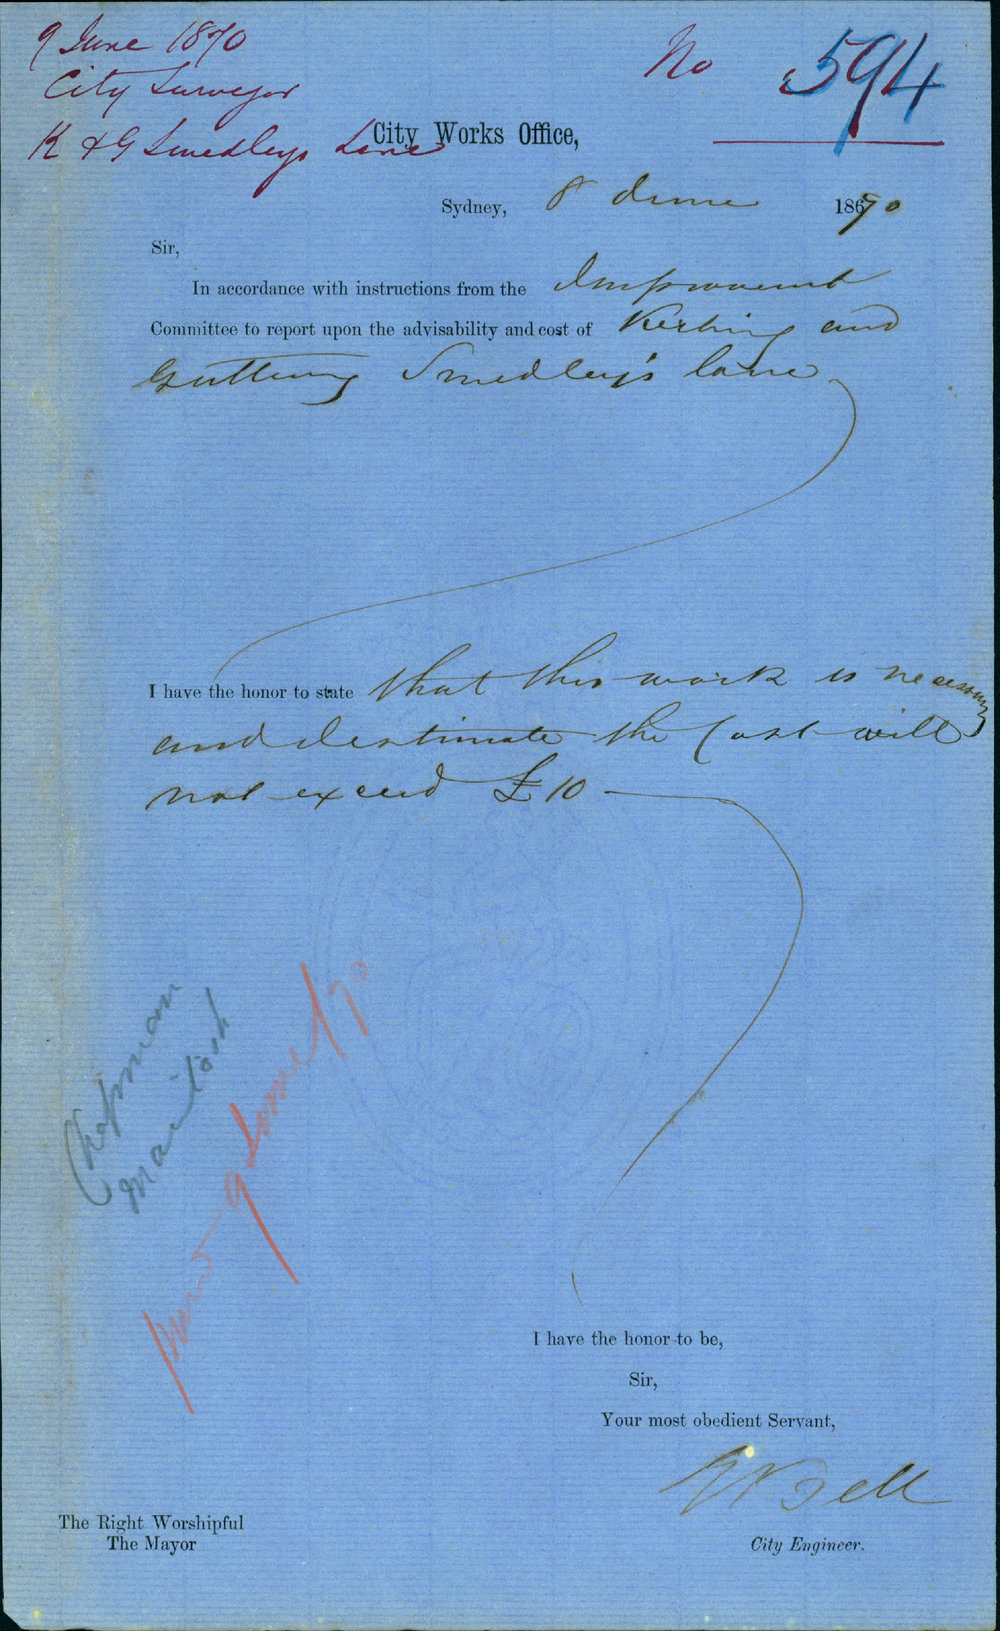 9 June 1870
City Surveyor
K & G Smedleys Lane
No 594
City Works Office,
Sydney, 8 June 1870
Sir,
In accordance with instructions from the Improvement
Committee to report upon the advisability and cost of Kerbing and
Guttering Smedley's lane
I have the honor to state that this work is necessary
and I estimate the Cost will
not exceed £10
Chapman
Macintosh
9 June 70
I have the honor to be,
Sir,
Your most obedient Servant,
Bell
The Right Worshipful
The Mayor
City Engineer.